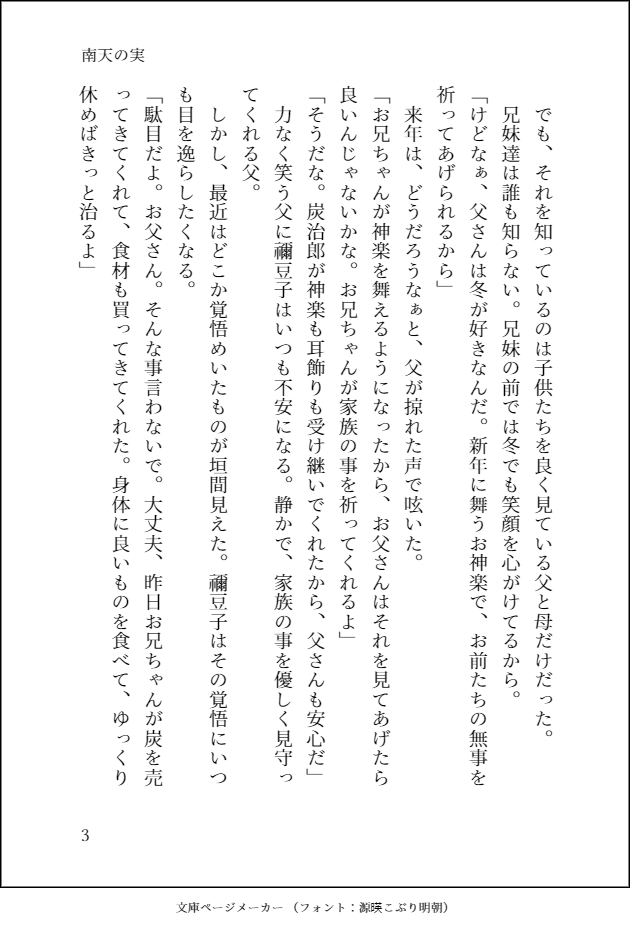 南天の実
　でも、それを知っているのは子供たちを良く見ている父と母だけだった。
　兄妹達は誰も知らない。兄妹の前では冬でも笑顔を心がけてるから。
「けどなぁ、父さんは冬が好きなんだ。新年に舞うお神楽で、お前たちの無事を
祈ってあげられるから」
　来年は、どうだろうなぁと、父が掠れた声で呟いた。
「お兄ちゃんが神楽を舞えるようになったから、お父さんはそれを見てあげたら
良いんじゃないかな。お兄ちゃんが家族の事を祈ってくれるよ」
「そうだな。炭治郎が神楽も耳飾りも受け継いでくれたから、父さんも安心だ」
　力なく笑う父に禰豆子はいつも不安になる。静かで、家族の事を優しく見守っ
てくれる父。
　しかし、最近はどこか覚悟めいたものが垣間見えた。禰豆子はその覚悟にいつ
も目を逸らしたくなる。
「駄目だよ。お父さん。そんな事言わないで。大丈夫、昨日お兄ちゃんが炭を売
ってきてくれて、食材も買ってきてくれた。身体に良いものを食べて、ゆっくり
休めばきっと治るよ」
3
文庫ページメーカー （フォント：源暎こぶり明朝）